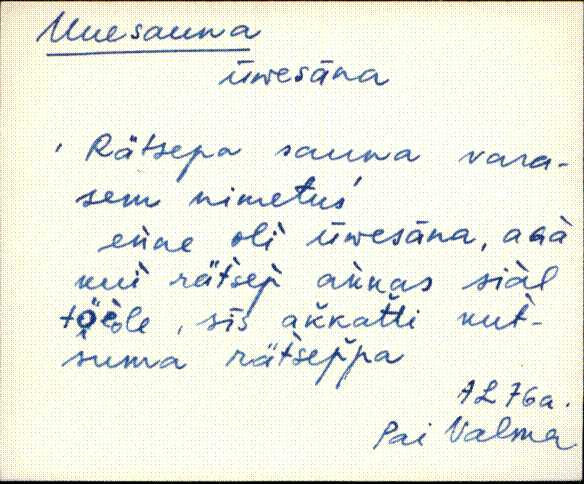 Uuesauna
ūwesāna
'Rätsepa sauna vara-
sem nimetus'
eǹne olì ūwesāna, aàà
kuì rätsep̀ aǹnas siàl
töö̀le, sīs ak̀katti kut̀-
suma rätsep̀pa
AL 76a.
Pai Valma